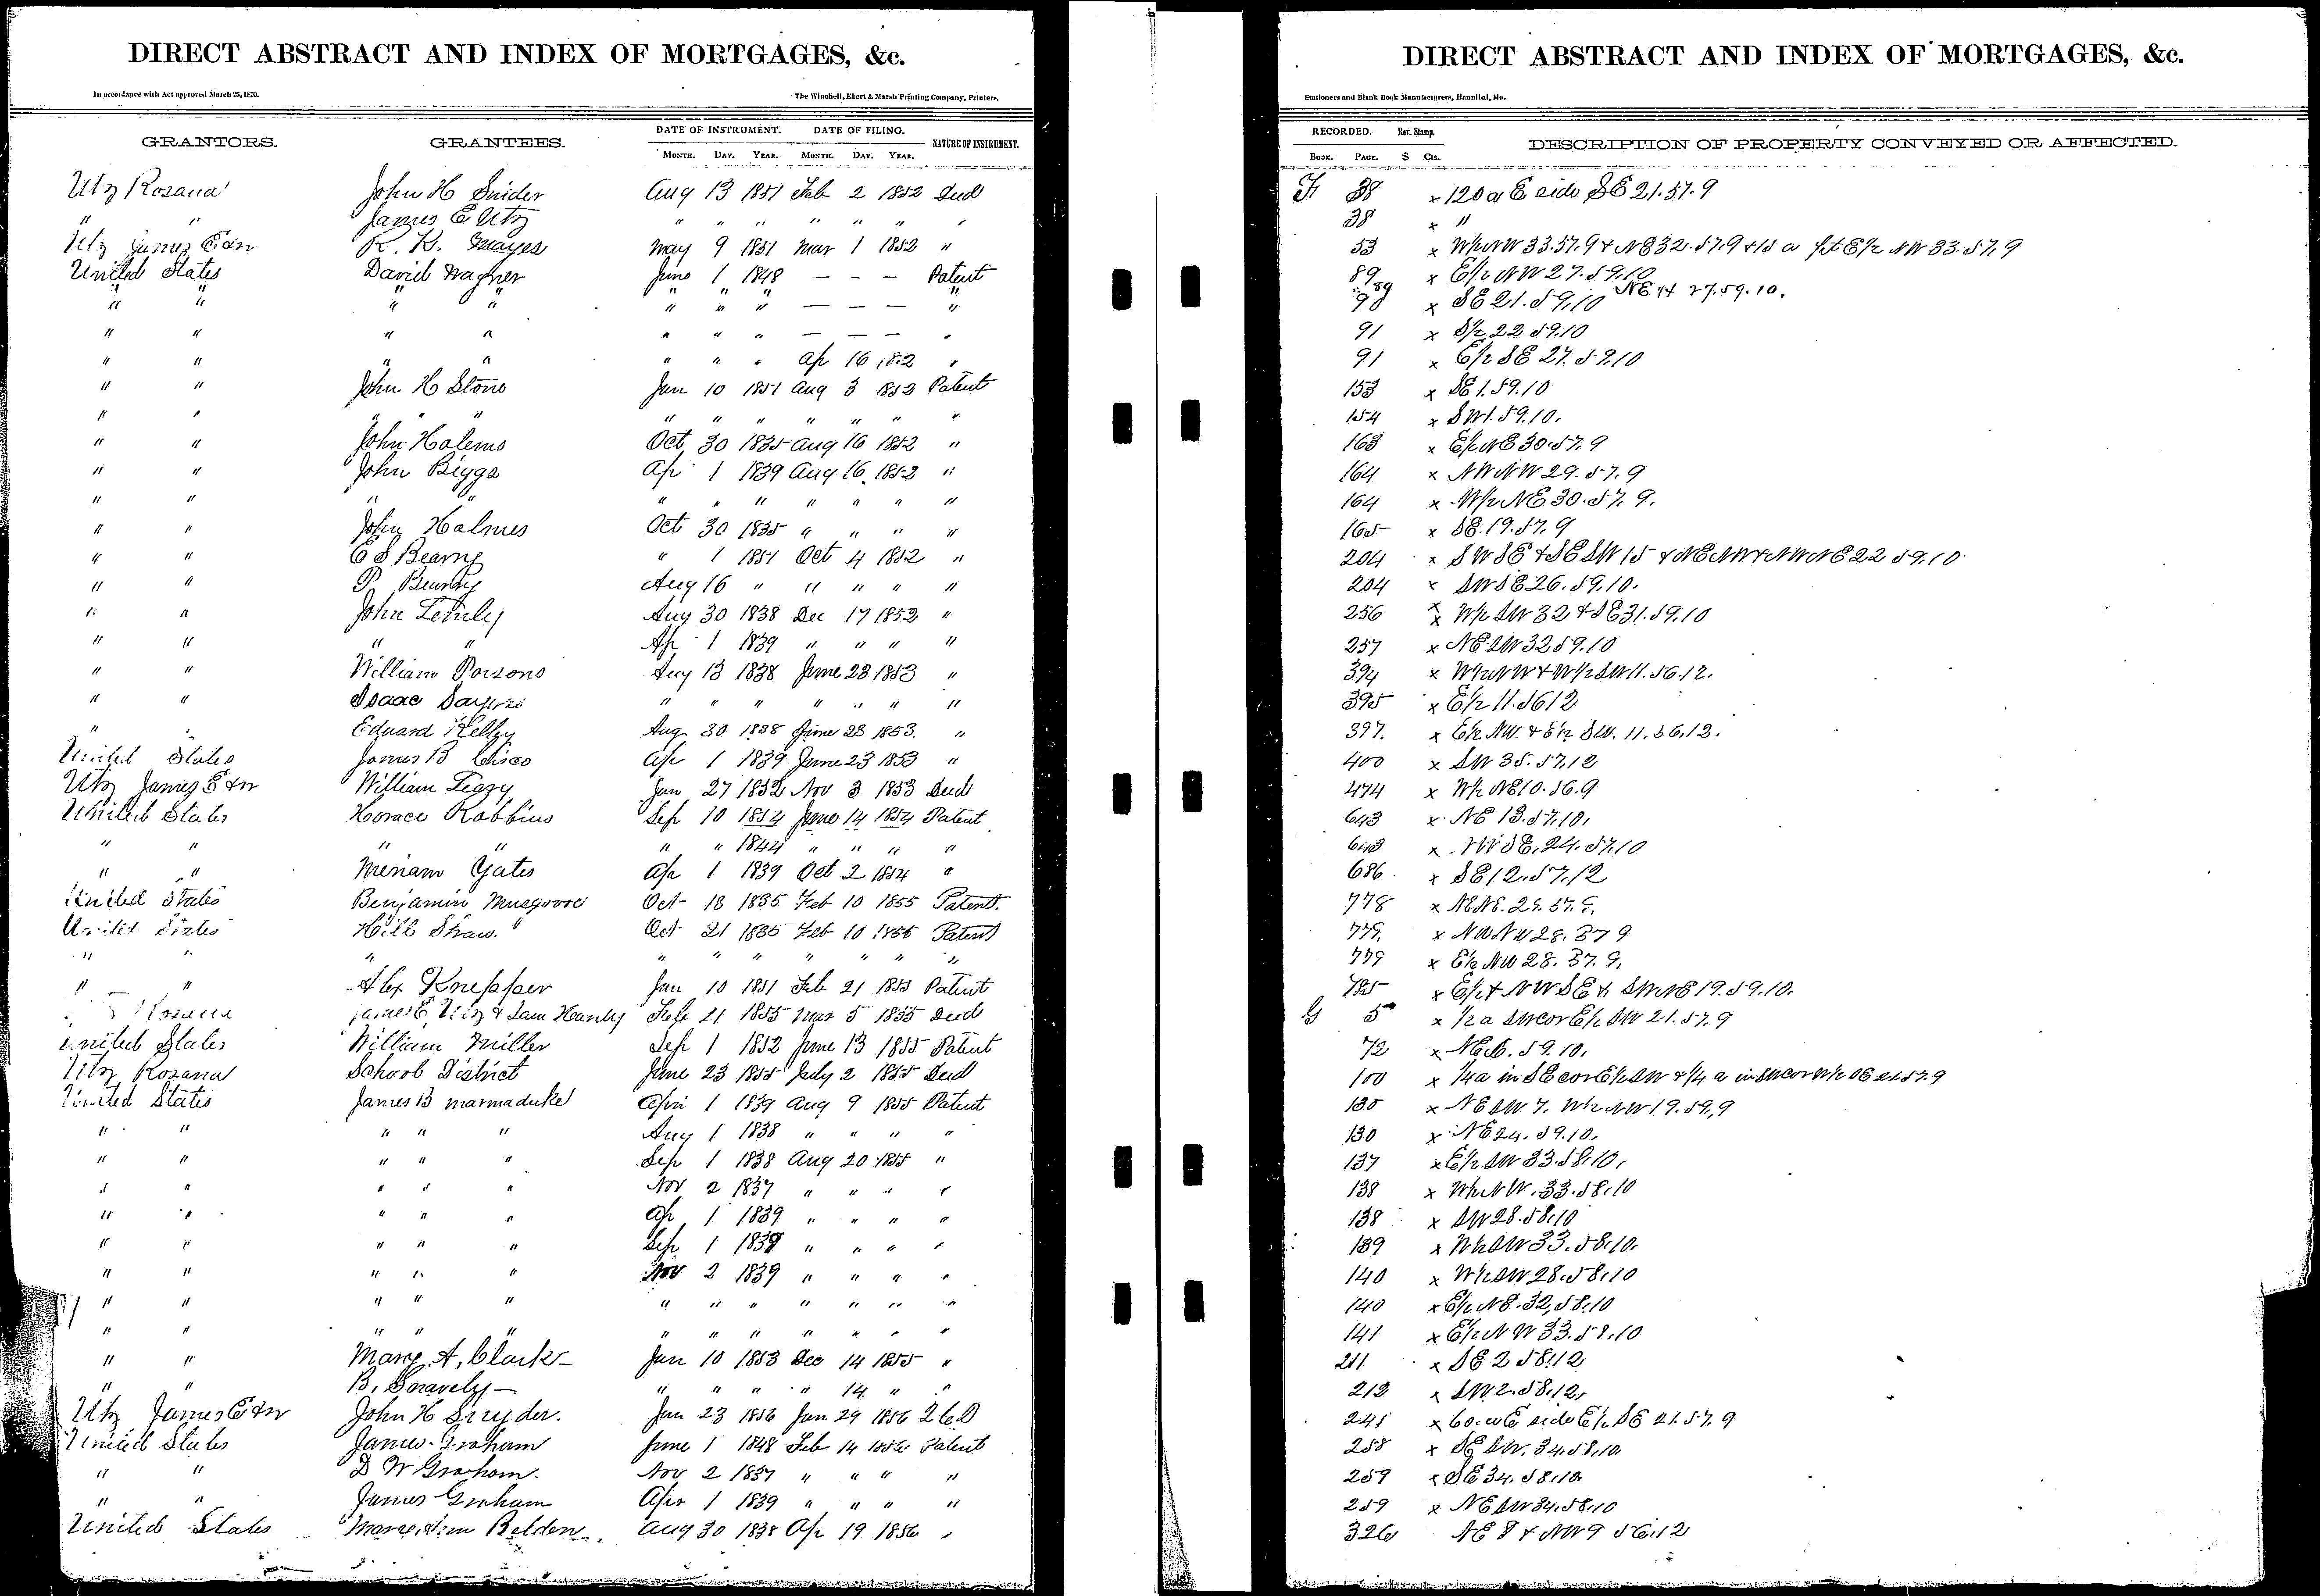 DIRECT ABSTRACT AND INDEX OF MORTGAGES, &c.
In accordance with Act approved March 25, 1870.
The Winchell, Ebert & Marsh Printing Company, Printers,
DIRECT ABSTRACT AND INDEX OF MORTGAGES, &c.
Stationers and Blank Book Manufacturers, Hannibal, Mo.
GRANTORS. GRANTEES. DATE OF INSTRUMENT. DATE OF FILING. NATURE OF INSTRUMENT.
MONTH. DAY. YEAR. MONTH. DAY. YEAR.
RECORDED. Rec. Stamp. DESCRIPTION OF PROPERTY CONVEYED OR AFFECTED.
BOOK. PAGE. $ Cts.
Utz Rosana John H Snider Aug 13 1851 Feb 2 1852 Deed F 38 x 120 a E side SE 21.57.9
" " James E Utz " " " " " " " 38 x "
Utz James E &n R. K. Mayes May 9 1851 Mar 1 1852 " 53 x W½NW 33.57.9 & NE32.57.9 & 15 a E½ NW 33.57.9
United States David Wagner June 1 1848 — — — Patent 89 x E½ NW 27.59.10
" " " " " " " — — — " 90 x SE 21.59.10 89 NE ¼ 27.59.10.
" " " " " " " — — — " 91 x S½ 22 59.10
" " " " " " " Ap 16 1852 " 91 x E½ SE 27.59.10
" " John H Stone Jan 10 1851 Aug 3 1852 Patent 153 x SE 1.59.10
" " " " " " " " " " " 154 x SW1.59.10.
" " John Holems Oct 30 1835 Aug 16 1852 " 163 x E½NE 30.57.9
" " John Biggs Ap 1 1839 Aug 16 1852 " 164 x NWNW 29.57.9
" " " " " " " " " " " 164 x W½ NE 30.57.9.
" " John Holmes Oct 30 1835 " " " " 165 x SE.19.57.9
" " E S Bearny " 1 1851 Oct 4 1852 " 204 x SWSE & SESW 15 & NENW & NWNE 22 59.10
" " P Aug 16 " " " " " 204 x SWSE26.59.10.
" " John Aug 30 1838 Dec 17 1852 " 256 x W½ SW 32 & SE31.59.10
" " " " Ap 1 1839 " " " " 257 x NESW32 59.10
" " William Porsons Aug 13 1838 June 23 1853 " 394 x W½NW & W½SW11.56.12.
" " Isaac " " " " " " " 395 x E½ 11.56 12
" " Edward Kelley Aug 30 1838 June 23 1853. " 397. x E½ NW. & E½ SW. 11.56.12.
United States James B Cisco Ap 1 1839 June 23 1853 " 400 x SW 35.57.12
Utz James E &n William Jan 27 1852 Nov 3 1853 Deed 474 x W½ NE10.56.9
United States Horace Robbins Sep 10 1854 June 14 1854 Patent 643 x NE 13.57.10.
" " " " " " 1844 " " " " 643 x NWSE.24.57.10
" " Meriam Yates Ap 1 1839 Oct 2 1854 " 686 x SE12.57.12
United States Benjamin Musgrove Oct 13 1835 Feb 10 1855 Patent. 778 x NENE.29.57.9.
United States Hill Shaw. Oct 21 1835 Feb 10 1855 Patent 779. x NWNW28.57 9
" " " " " " " " " " 779 x E½ NW 28.57.9.
" " Alex Knepper Jan 10 1851 Feb 21 1855 Patent 785 x E½ & NWSE & SWNE 19.59.10.
Rosana James E Utz & Sam Feb 21 1855 Mar 5 1855 Deed G 5 x ½ a SWcor E½ SW 21.57.9
United States William Miller Sep 1 1852 June 13 1855 Patent 72 x NE6.59.10.
Utz Rosana School District June 23 1855 July 2 1855 Deed 100 x ¼a in SE cor E½ SW & ¼ a in SWcor W½ SE 21.57.9
United States James B Marmaduke Apr 1 1839 Aug 9 1855 Patent 130 x NESW 7. W½ NW19.59.9
" " " " " Aug 1 1838 " " " " 130 x NE24.59.10.
" " " " " Sep 1 1838 Aug 20 1855 " 137 x E½ SW 33.58.10.
" " " " " Nov 2 1837 " " " " 138 x W½NW.33.58.10
" " " " " Ap 1 1839 " " " " 138 x SW28.58.10
" " " " " Sep 1 1838 " " " " 139 x W½SW33.58.10.
" " " " " Nov 2 1839 " " " " 140 x W½SW28.58.10
" " " " " " " " " " " " 140 x E½NE.32.58.10
" " " " " " " " " " " " 141 x E½NW33.58.10
" " Mary A, Clark – Jan 10 1853 Dec 14 1855 " 211 x SE 2 58.12
" " B, Snavely – " " " " 14 " " 212 x SW2.58.12.
Utz James E &n John H Snyder. Jan 23 1856 Jan 29 1856 2 C D 241 x 60 a E side E½ SE 21.57.9
United States James Graham June 1 1848 Feb 14 1856 Patent 258 x SESW.34.58.10.
" " D W Graham. Nov 2 1837 " " " " 259 x SE34.58.10
" " James Graham Apr 1 1839 " " " " 259 x NESW34.58.10
United States Belden Aug 30 1838 Ap 19 1856 " 326 NE 8 & NW9 56.12